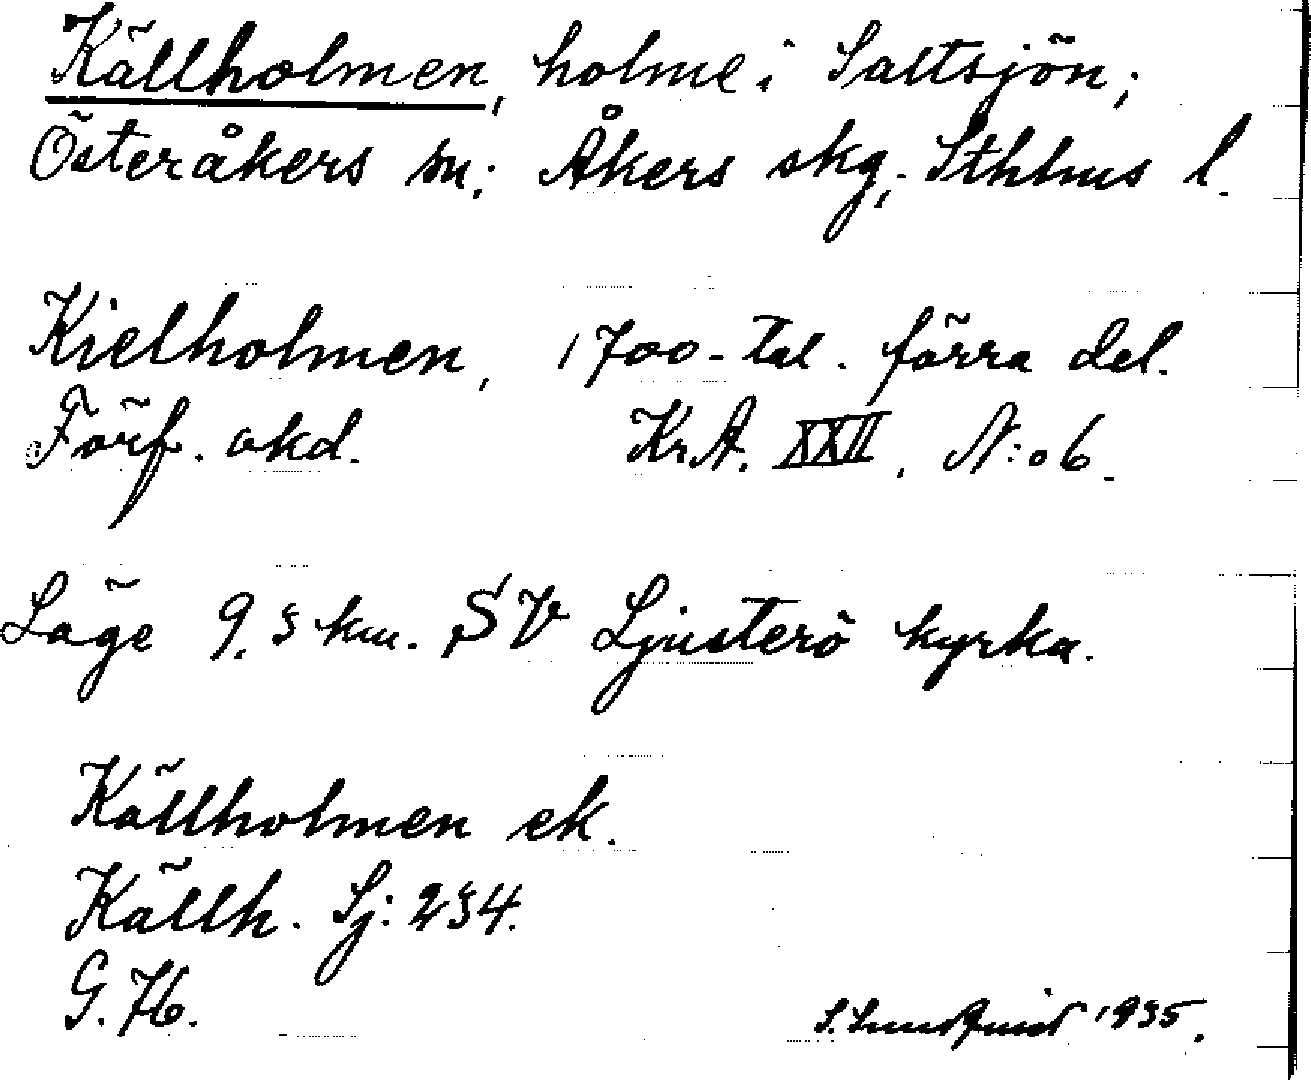 Källholmen, holme i Saltsjön;
Österåkers sn; Åkers skg; Sthlms l.
Kielholmen, 1700-tal. förra del.
Förf. okd. KrA. XXII, N:o 6.
Läge 9.5 km. SV Ljusterö kyrka.
Källholmen ek.
Källh. Sj: 234.
G. 76.
S. Lundquist 1935.